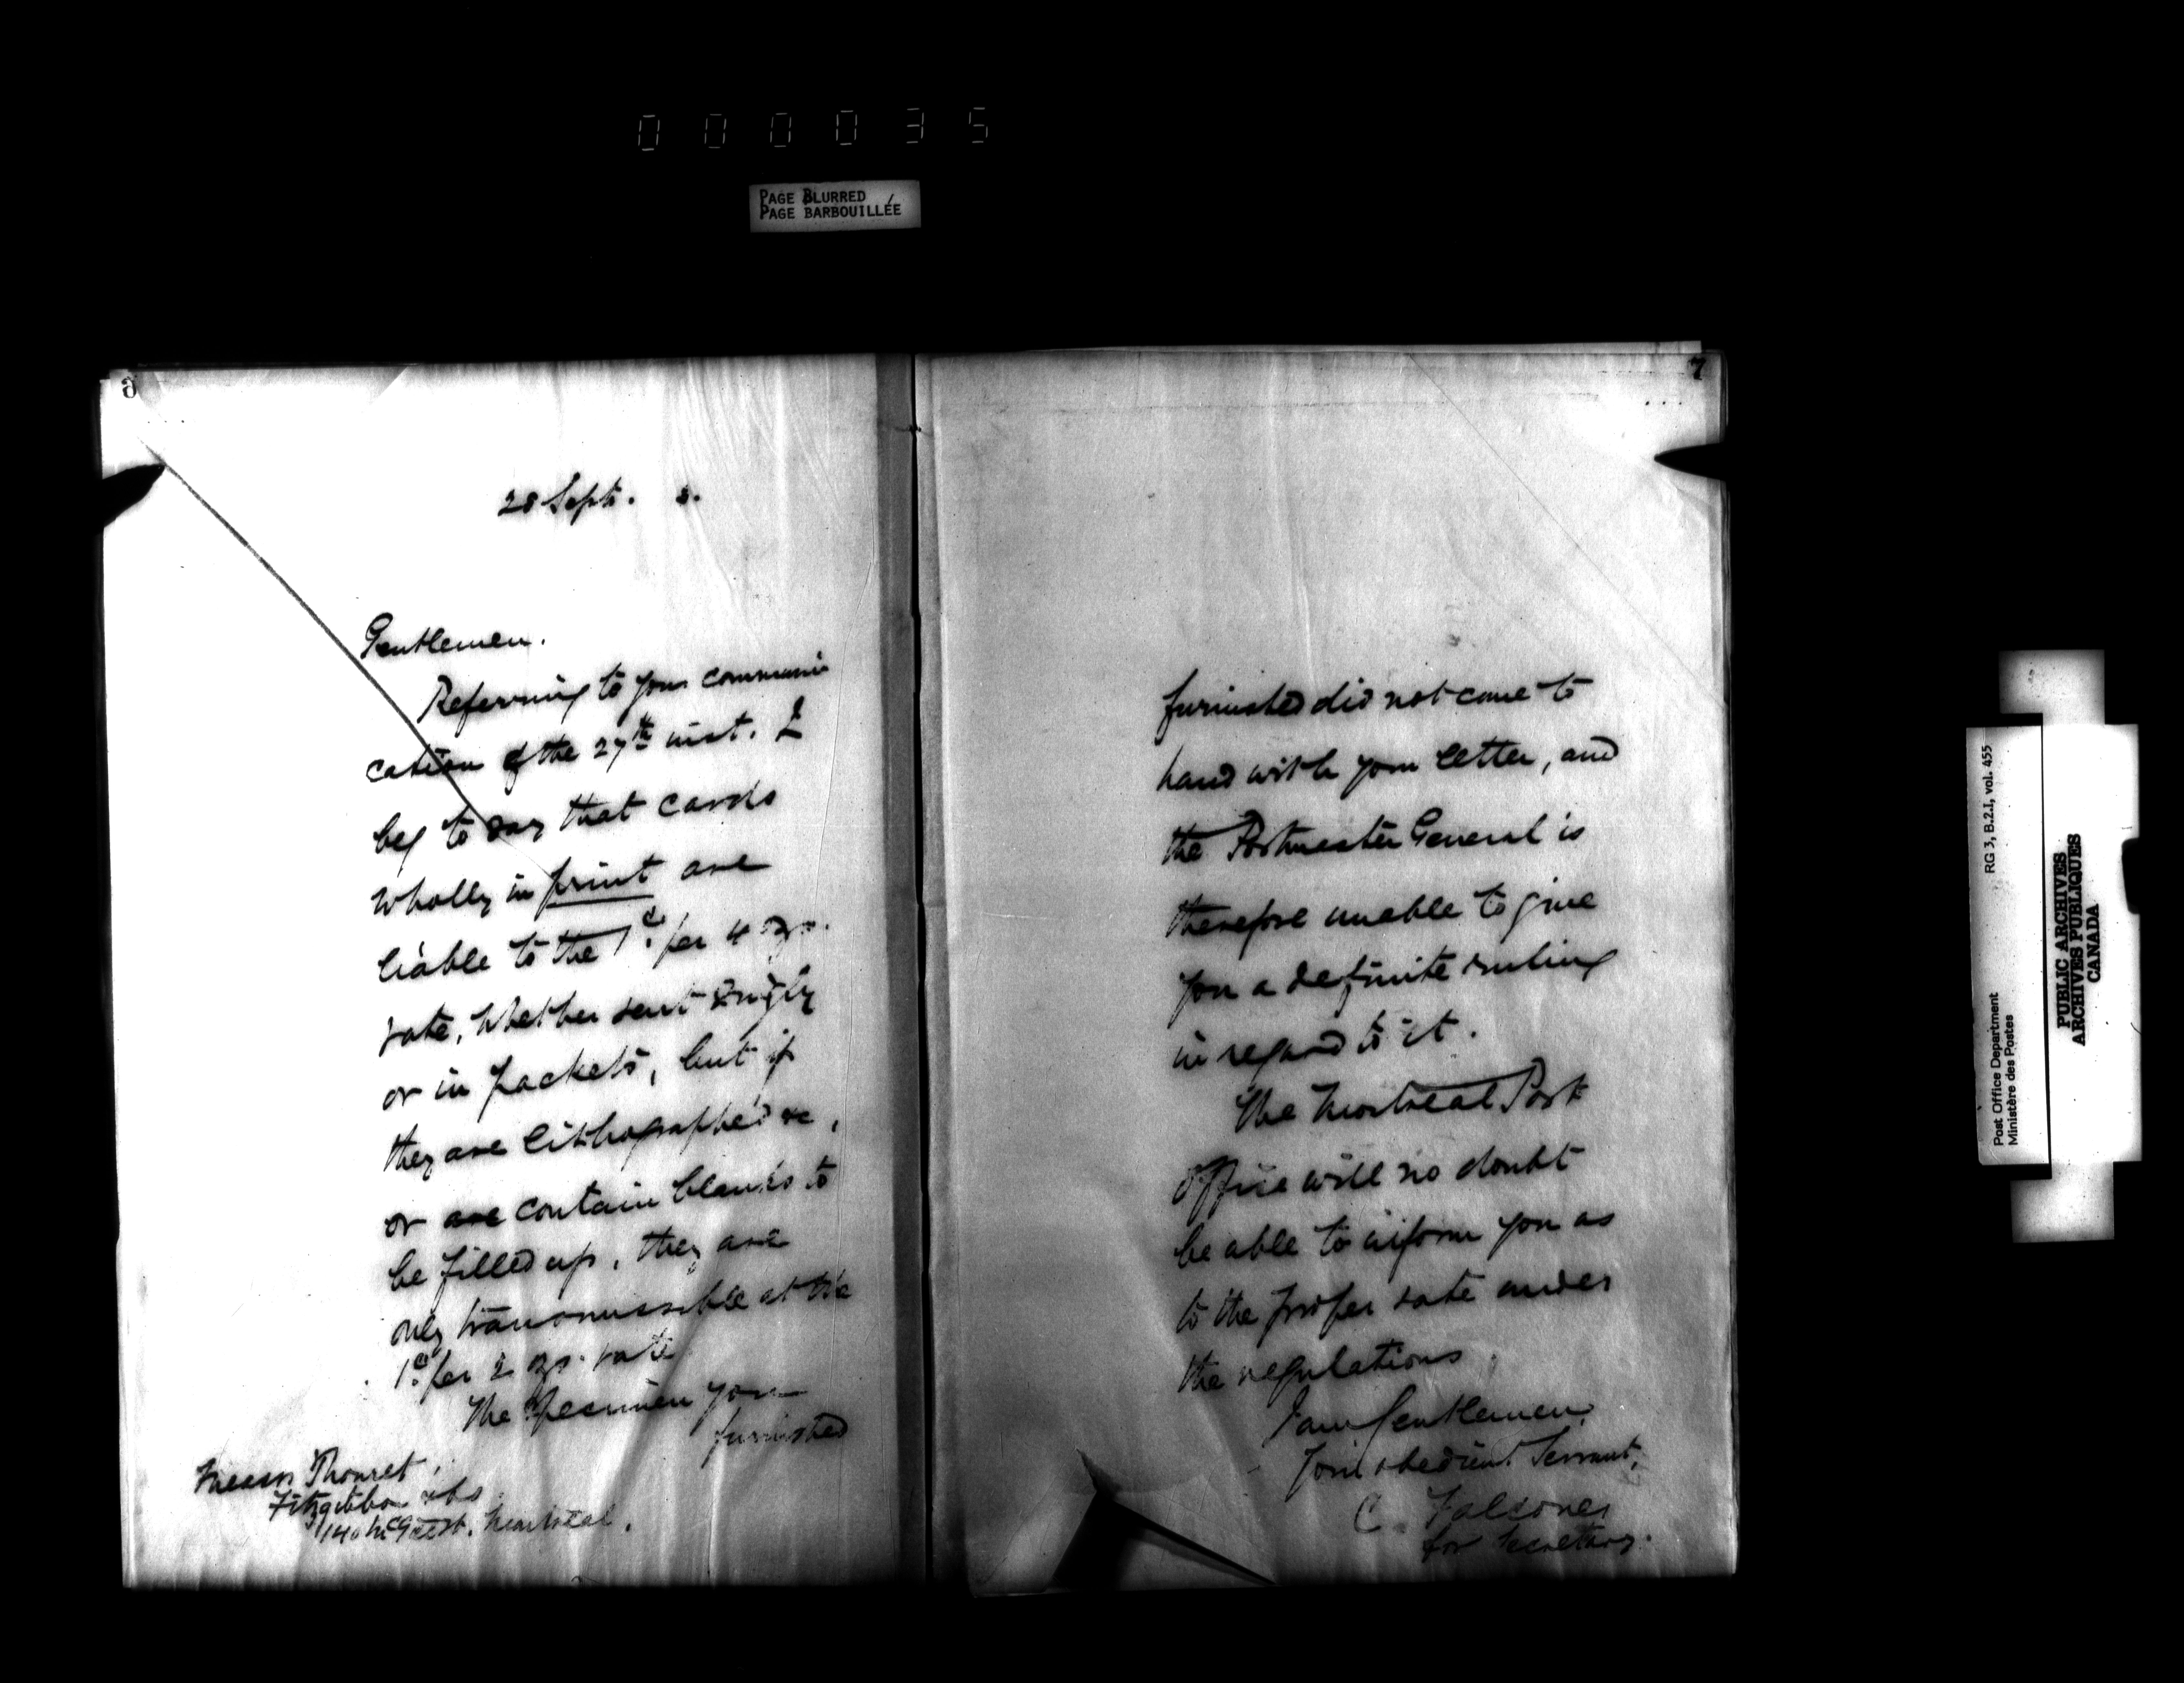 000035
PAGE BLURRED
PAGE BARBOUILLÉE
6
28 Sept. 8.
Gentlemen.
Referring to your communi
cation of the 27th inst. I
beg to say that cards
wholly in print are
liable to the 1c. per 4 ozs.
rate, whether sent singly
or in packets, but if
they are lithographed &c,
or are contain blanks to
be filled up, they are
only transmissible at the
1c. per 2 ozs. rate
The specimen you
furnished
Messrs Thouret,
Fitzgibbon & Co
140 McGill st. Montreal.
7
furnished did not come to
hand with your letter, and
the Postmaster General is
therefore unable to give
you a definite ruling
in regard to it.
The Montreal Post
Office will no doubt
be able to inform you as
to the proper rate under
the regulations.
I am Gentlemen,
Your obedient Servant,
C. Falconer
for Secretary.
RG 3, B.2.1, vol. 455
Post Office Department
Ministère des Postes
PUBLIC ARCHIVES
ARCHIVES PUBLIQUES
CANADA